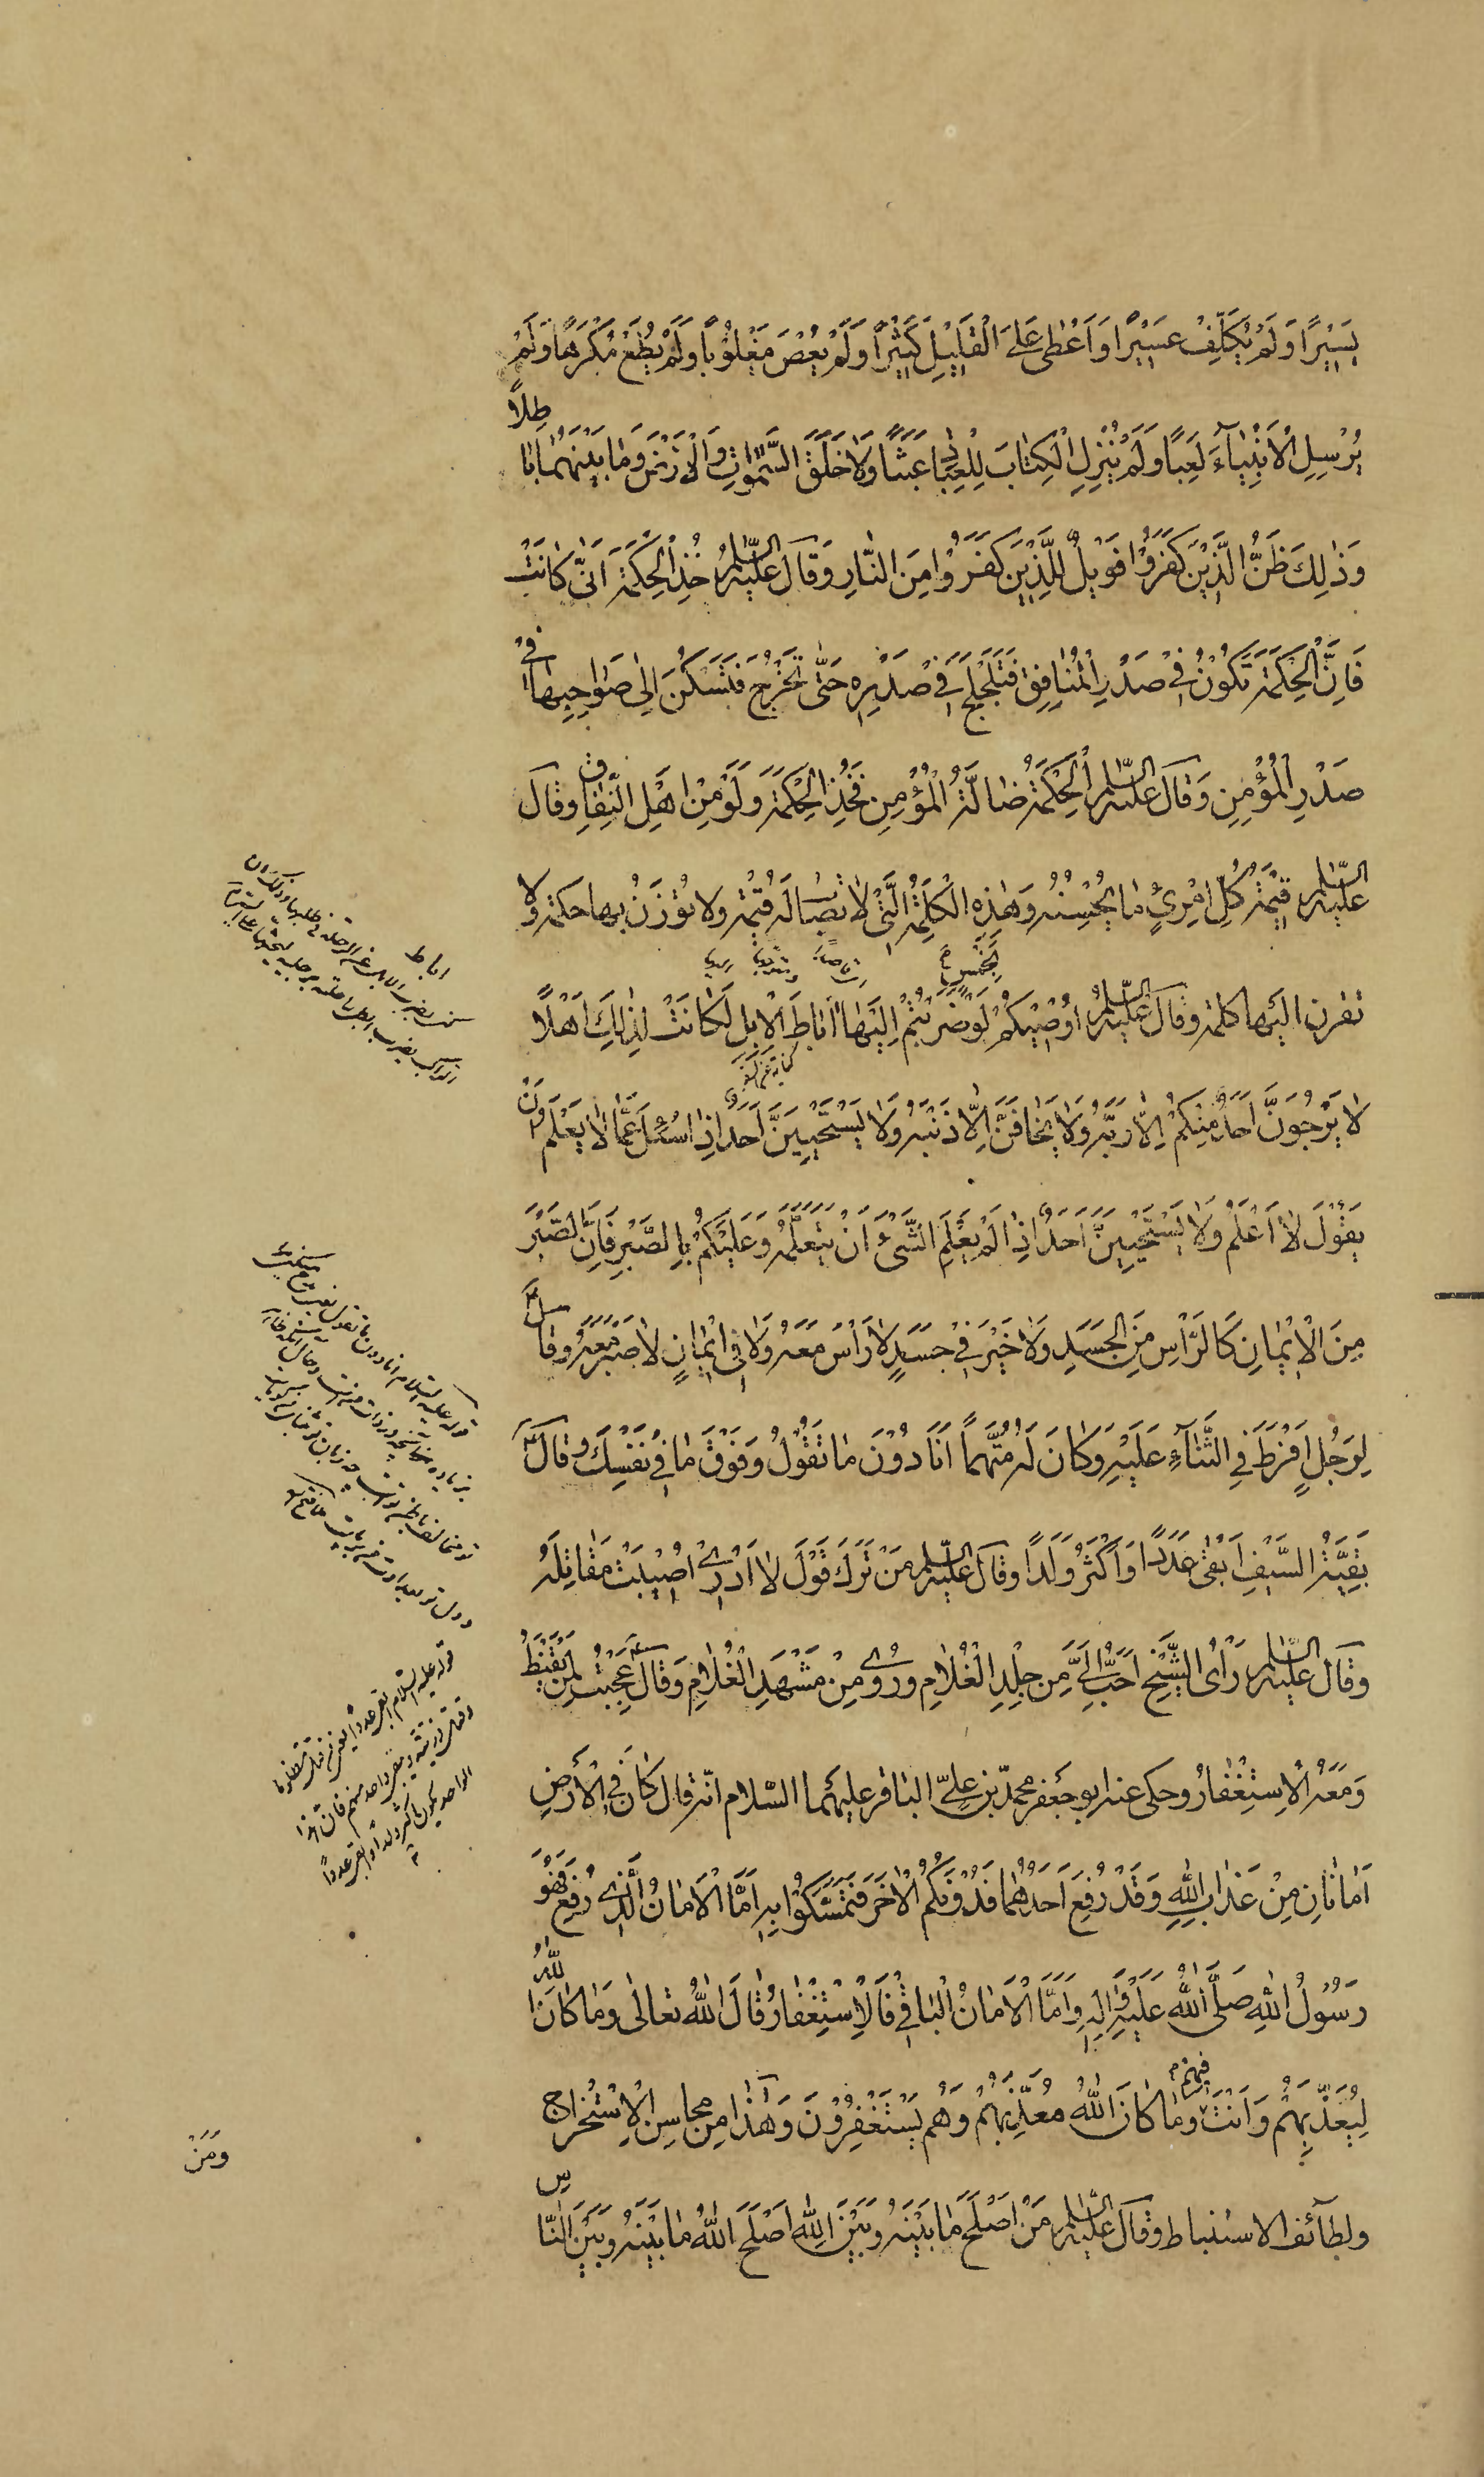 يَسِيْرًا وَلَمْ يُكَلِّفْ عَسِيْرًا وَاَعْطٰى عَلَى الْقَلِيْلِ كَثِيْرًا وَلَمْ يُعْصَ مَغْلُوْبًا وَلَمْ يُطَعْ مُكْرَهًا وَلَمْ
يُرْسِلِ الْاَنْبِيَآءَ لَعِبًا وَلَمْ يُنْزِلِ الْكِتَابَ لِلْعِبَادِ عَبَثًا وَلَا خَلَقَ السَّمٰوَاتِ وَالْاَرْضَ وَمَا بَيْنَهُمَا بَاطِلًا
وَذٰلِكَ ظَنُّ الَّذِيْنَ كَفَرُوْا فَوَيْلٌ لِلَّذِيْنَ كَفَرُوْا مِنَ النَّارِ وَقَالَ عَلَيْهِ السَّلَامُ خُذِ الْحِكْمَةَ اَنّٰى كَانَتْ
فَاِنَّ الْحِكْمَةَ تَكُوْنُ فِيْ صَدْرِ الْمُنَافِقِ فَتَلَجْلَجُ فِيْ صَدْرِهِ حَتّٰى تَخْرُجَ فَتَسْكُنَ اِلٰى صَوَاحِبِهَا فِيْ
صَدْرِ الْمُؤْمِنِ وَقَالَ عَلَيْهِ السَّلَامُ اَلْحِكْمَةُ ضَالَّةُ الْمُؤْمِنِ فَخُذِ الْحِكْمَةَ وَلَوْ مِنْ اَهْلِ النِّفَاقِ وَقَالَ
عَلَيْهِ السَّلَامُ قِيْمَةُ كُلِّ امْرِئٍ مَا يُحْسِنُهُ وَهٰذِهِ الْكَلِمَةُ الَّتِيْ لَا تُصَابُ لَهَا قِيْمَةٌ وَلَا تُوْزَنُ بِهَا حِكْمَةٌ وَلَا
تقرن اليها كلمة وقال عَلَيْهِ السَّلَامُ اُوْصِيْكُمْ بِخَمْسٍ لَوْ ضَرَبْتُمْ اِلَيْهَا اٰبَاطَ الْاِبِلِ لَكَانَتْ لِذٰلِكَ اَهْلًا
لَا يَرْجُوَنَّ اَحَدٌ مِنْكُمْ اِلَّا رَبَّهُ وَلَا يَخَافَنَّ اِلَّا ذَنْبَهُ وَلَا يَسْتَحْيِيَنَّ اَحَدٌ اِذَا سُئِلَ عَمَّا لَا يَعْلَمُ اَنْ
يَقُوْلَ لَا اَعْلَمُ وَلَا يَسْتَحْيِيَنَّ اَحَدٌ اِذَا لَمْ يَعْلَمِ الشَّيْءَ اَنْ يَتَعَلَّمَهُ وَعَلَيْكُمْ بِالصَّبْرِ فَاِنَّ الصَّبْرَ
مِنَ الْاِيْمَانِ كَالرَّاْسِ مِنَ الْجَسَدِ وَلَا خَيْرَ فِيْ جَسَدٍ لَا رَاْسَ مَعَهُ وَلَا فِيْ اِيْمَانٍ لَا صَبْرَ مَعَهُ وَقَالَ
لِرَجُلٍ اَفْرَطَ فِي الثَّنَآءِ عَلَيْهِ وَكَانَ لَهُ مُتَّهِمًا اَنَا دُوْنَ مَا تَقُوْلُ وَفَوْقَ مَا فِيْ نَفْسِكَ وَقَالَ
بَقِيَّةُ السَّيْفِ اَبْقٰى عَدَدًا وَاَكْثَرُ وَلَدًا وَقَالَ عَلَيْهِ السَّلَامُ مَنْ تَرَكَ قَوْلَ لَا اَدْرِيْ اُصِيْبَتْ مَقَاتِلُهُ
وَقَالَ عَلَيْهِ السَّلَامُ رَأْىُ الشَّيْخِ اَحَبُّ اِلَيَّ مِنْ جَلَدِ الْغُلَامِ وَرُوِيَ مِنْ مَشْهَدِ الْغُلَامِ وَقَالَ عَجِبْتُ لِمَنْ يَقْنَطُ
وَمَعَهُ الْاِسْتِغْفَارُ وحكى عنه ابو جعفر محمّد بن عليّ الباقر عليهما السّلام انّه قال كَانَ فِي الْاَرْضِ
اَمَانَانِ مِنْ عَذَابِ اللهِ وَقَدْ رُفِعَ اَحَدُهُمَا فَدُوْنَكُمُ الْاٰخَرَ فَتَمَسَّكُوْا بِهِ اَمَّا الْاَمَانُ الَّذِيْ رُفِعَ فَهُوَ
رَسُوْلُ اللهِ صَلَّى اللهُ عَلَيْهِ وَاٰلِهِ وَاَمَّا الْاَمَانُ الْبَاقِيْ فَالْاِسْتِغْفَارُ قَالَ اللهُ تعالٰى وَمَا كَانَ اللهُ
لِيُعَذِّبَهُمْ وَاَنْتَ فِيْهِمْ وَمَا كَانَ اللهُ مُعَذِّبَهُمْ وَهُمْ يَسْتَغْفِرُوْنَ وَهٰذَا مِنْ محاسن الْاِسْتخراج
ولطآئف الاستنباط وقال عَلَيْهِ السَّلَامُ مَنْ اَصْلَحَ مَا بَيْنَهُ وَبَيْنَ اللهِ اَصْلَحَ اللهُ مَا بَيْنَهُ وَبَيْنَ النَّاسِ
وَمَنْ
اباط
قوله عليه السّلام ابقى عددًا